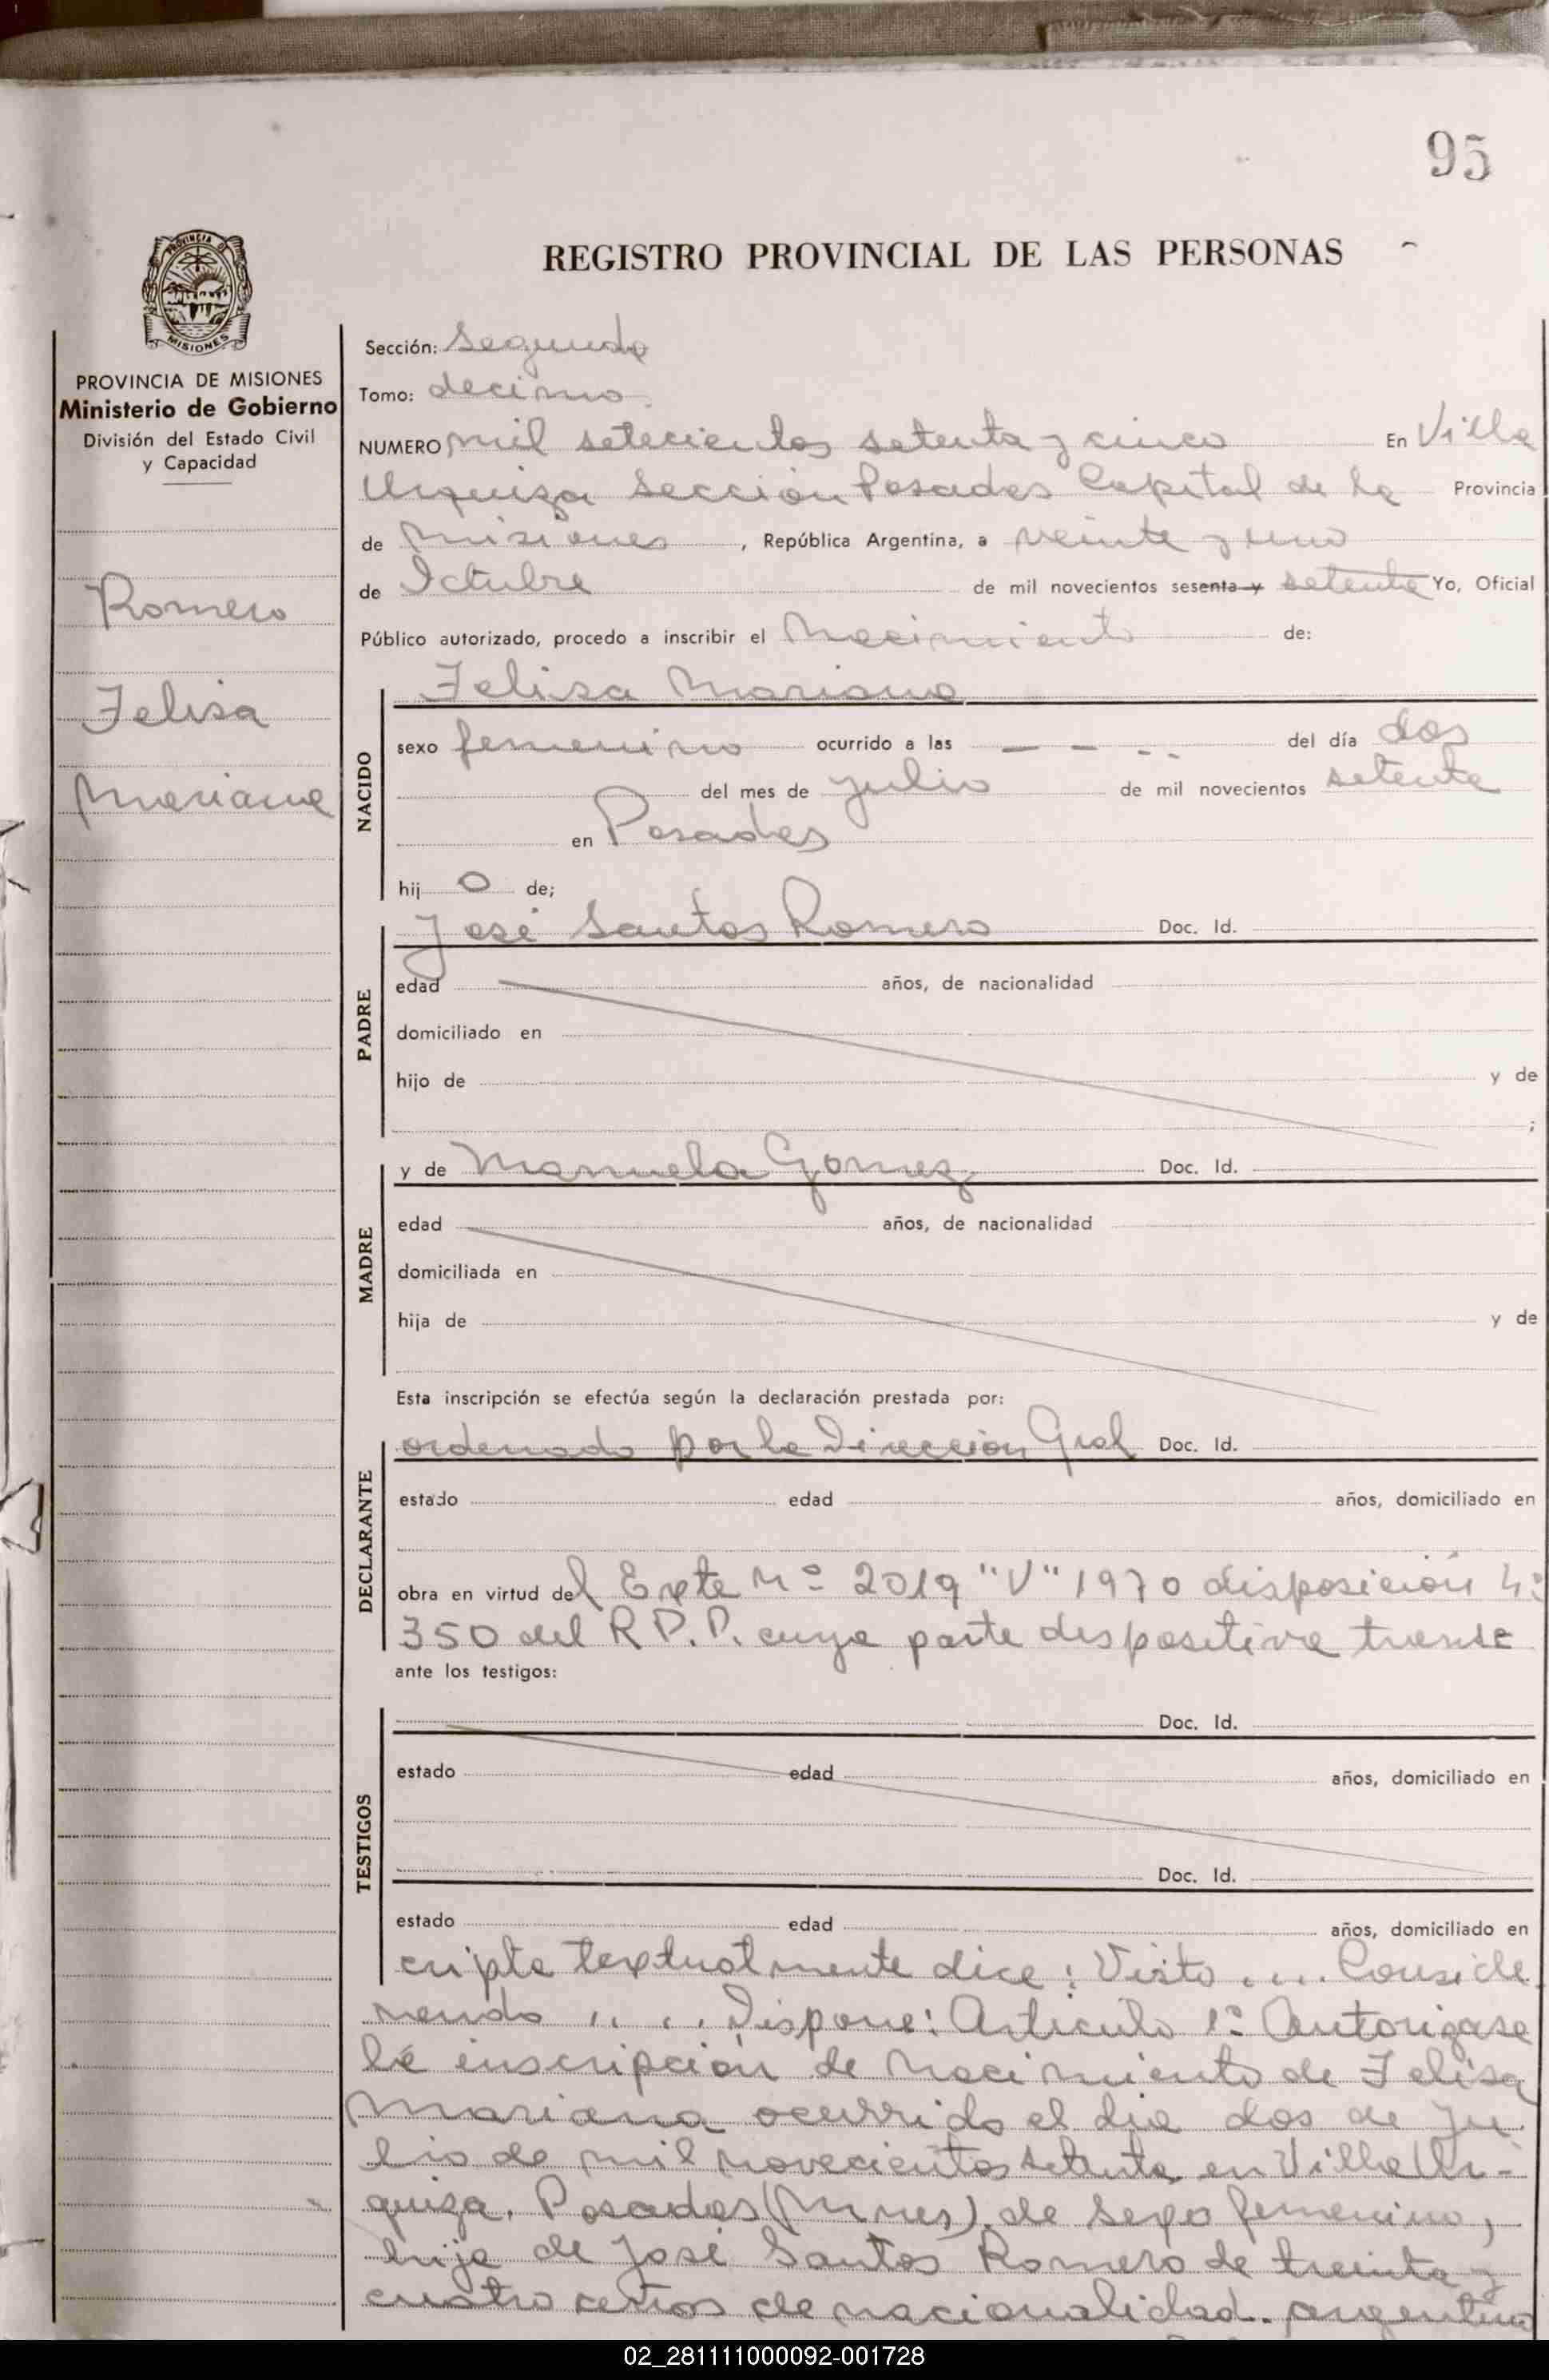 95
REGISTRO PROVINCIAL DE LAS PERSONAS
PROVINCIA DE MISIONES
PROVINCIA DE MISIONES
Ministerio de Gobierno
División del Estado Civil
y Capacidad
Romero
Felisa
Mariana
Sección: Segunda
Tomo: decimo
NUMERO mil setecientos setenta y cinco En Villa
Urquiza Sección Posadas Capital de la Provincia
de Misiones , República Argentina, a veinte y uno
de Octubre de mil novecientos sesenta y setenta Yo, Oficial
Público autorizado, procedo a inscribir el Nacimiento de:
NACIDO
Felisa Mariana
sexo femenino ocurrido a las — — - - del día dos
del mes de julio de mil novecientos setenta
en Posadas
hij o de;
PADRE
José Santos Romero Doc. Id.
edad años, de nacionalidad
domiciliado en
hijo de y de
;
MADRE
y de Manuela Gomez Doc. Id.
edad años, de nacionalidad
domiciliada en
hija de y de
Esta inscripción se efectúa según la declaración prestada por:
DECLARANTE
ordenado por la Dirección Gral Doc. Id.
estado edad años, domiciliado en
obra en virtud del Expte Nº 2019 "V" 1970 disposición Nº
350 del R.P.P. cuya parte dispositiva trans
ante los testigos:
TESTIGOS
Doc. Id.
estado edad años, domiciliado en
Doc. Id.
estado edad años, domiciliado en
cripta textualmente dice: Visto .... Conside
rando .... Dispone: Articulo 1º Autorizase
la inscripción de nacimiento de Felisa
Mariana ocurrido el dia dos de Ju
lio de mil novecientos setenta en Villa Ur-
quiza, Posadas (Mnes). de sexo femenino,
hija de José Santos Romero de treinta y
cuatro años de nacionalidad argentino
02_281111000092-001728